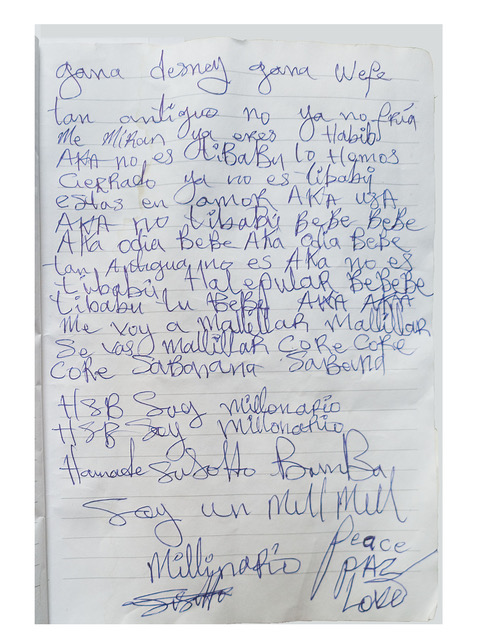 gana desney gana wepe
tan antiguo no ya no fría
Me MiRan ya eres Habib
AKA no es tiBaBu lo Hemos
CieRRado ya no es libabú
estas en amor AKA USA
AKA no tibabú BeBe BeBe
AKA odia BeBe AKA odia BeBe
tan Antigua no es AKa no es
tubabú Halepular BeBeBe
tibabu tu BeBe AKA AKA
Me voy a Malellar Mallillar
Se vas Mallillar CoRe CoRe
CoRe SaBanana SaBana
HSB Soy Millonario
HSB Soy Millonario
Hamade Sisotto BamBa
Soy un Mill Mill
Millinario
Peace
PAZ
Love